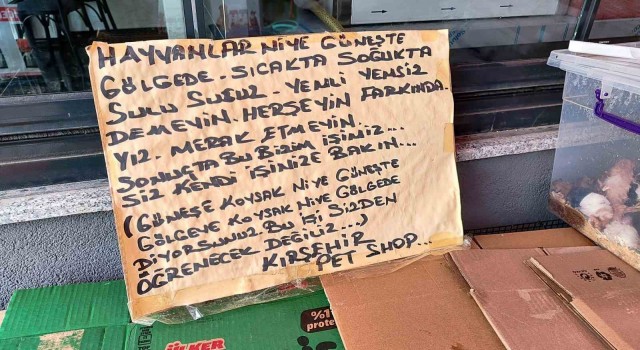 HAYVANLAR NİYE GÜNEŞTE
GÖLGEDE - SICAKTA SOĞUKTA
SULU SUSUZ - YEMLİ YEMSİZ
DEMEYİN. HERŞEYİN FARKINDA
YIZ. MERAK ETMEYİN.
SONUÇTA BU BİZİM İŞİNİZ...
SİZ KENDİ İŞİNİZE BAKIN...
(GÜNEŞE KOYSAK NİYE GÜNEŞTE
GÖLGEYE KOYSAK NİYE GÖLGEDE
DİYORSUNUZ BU İŞİ SİZDEN
ÖĞRENECEK DEĞİLİZ...)
KIRŞEHİR
PET SHOP...
ÜLKER
%1
prote